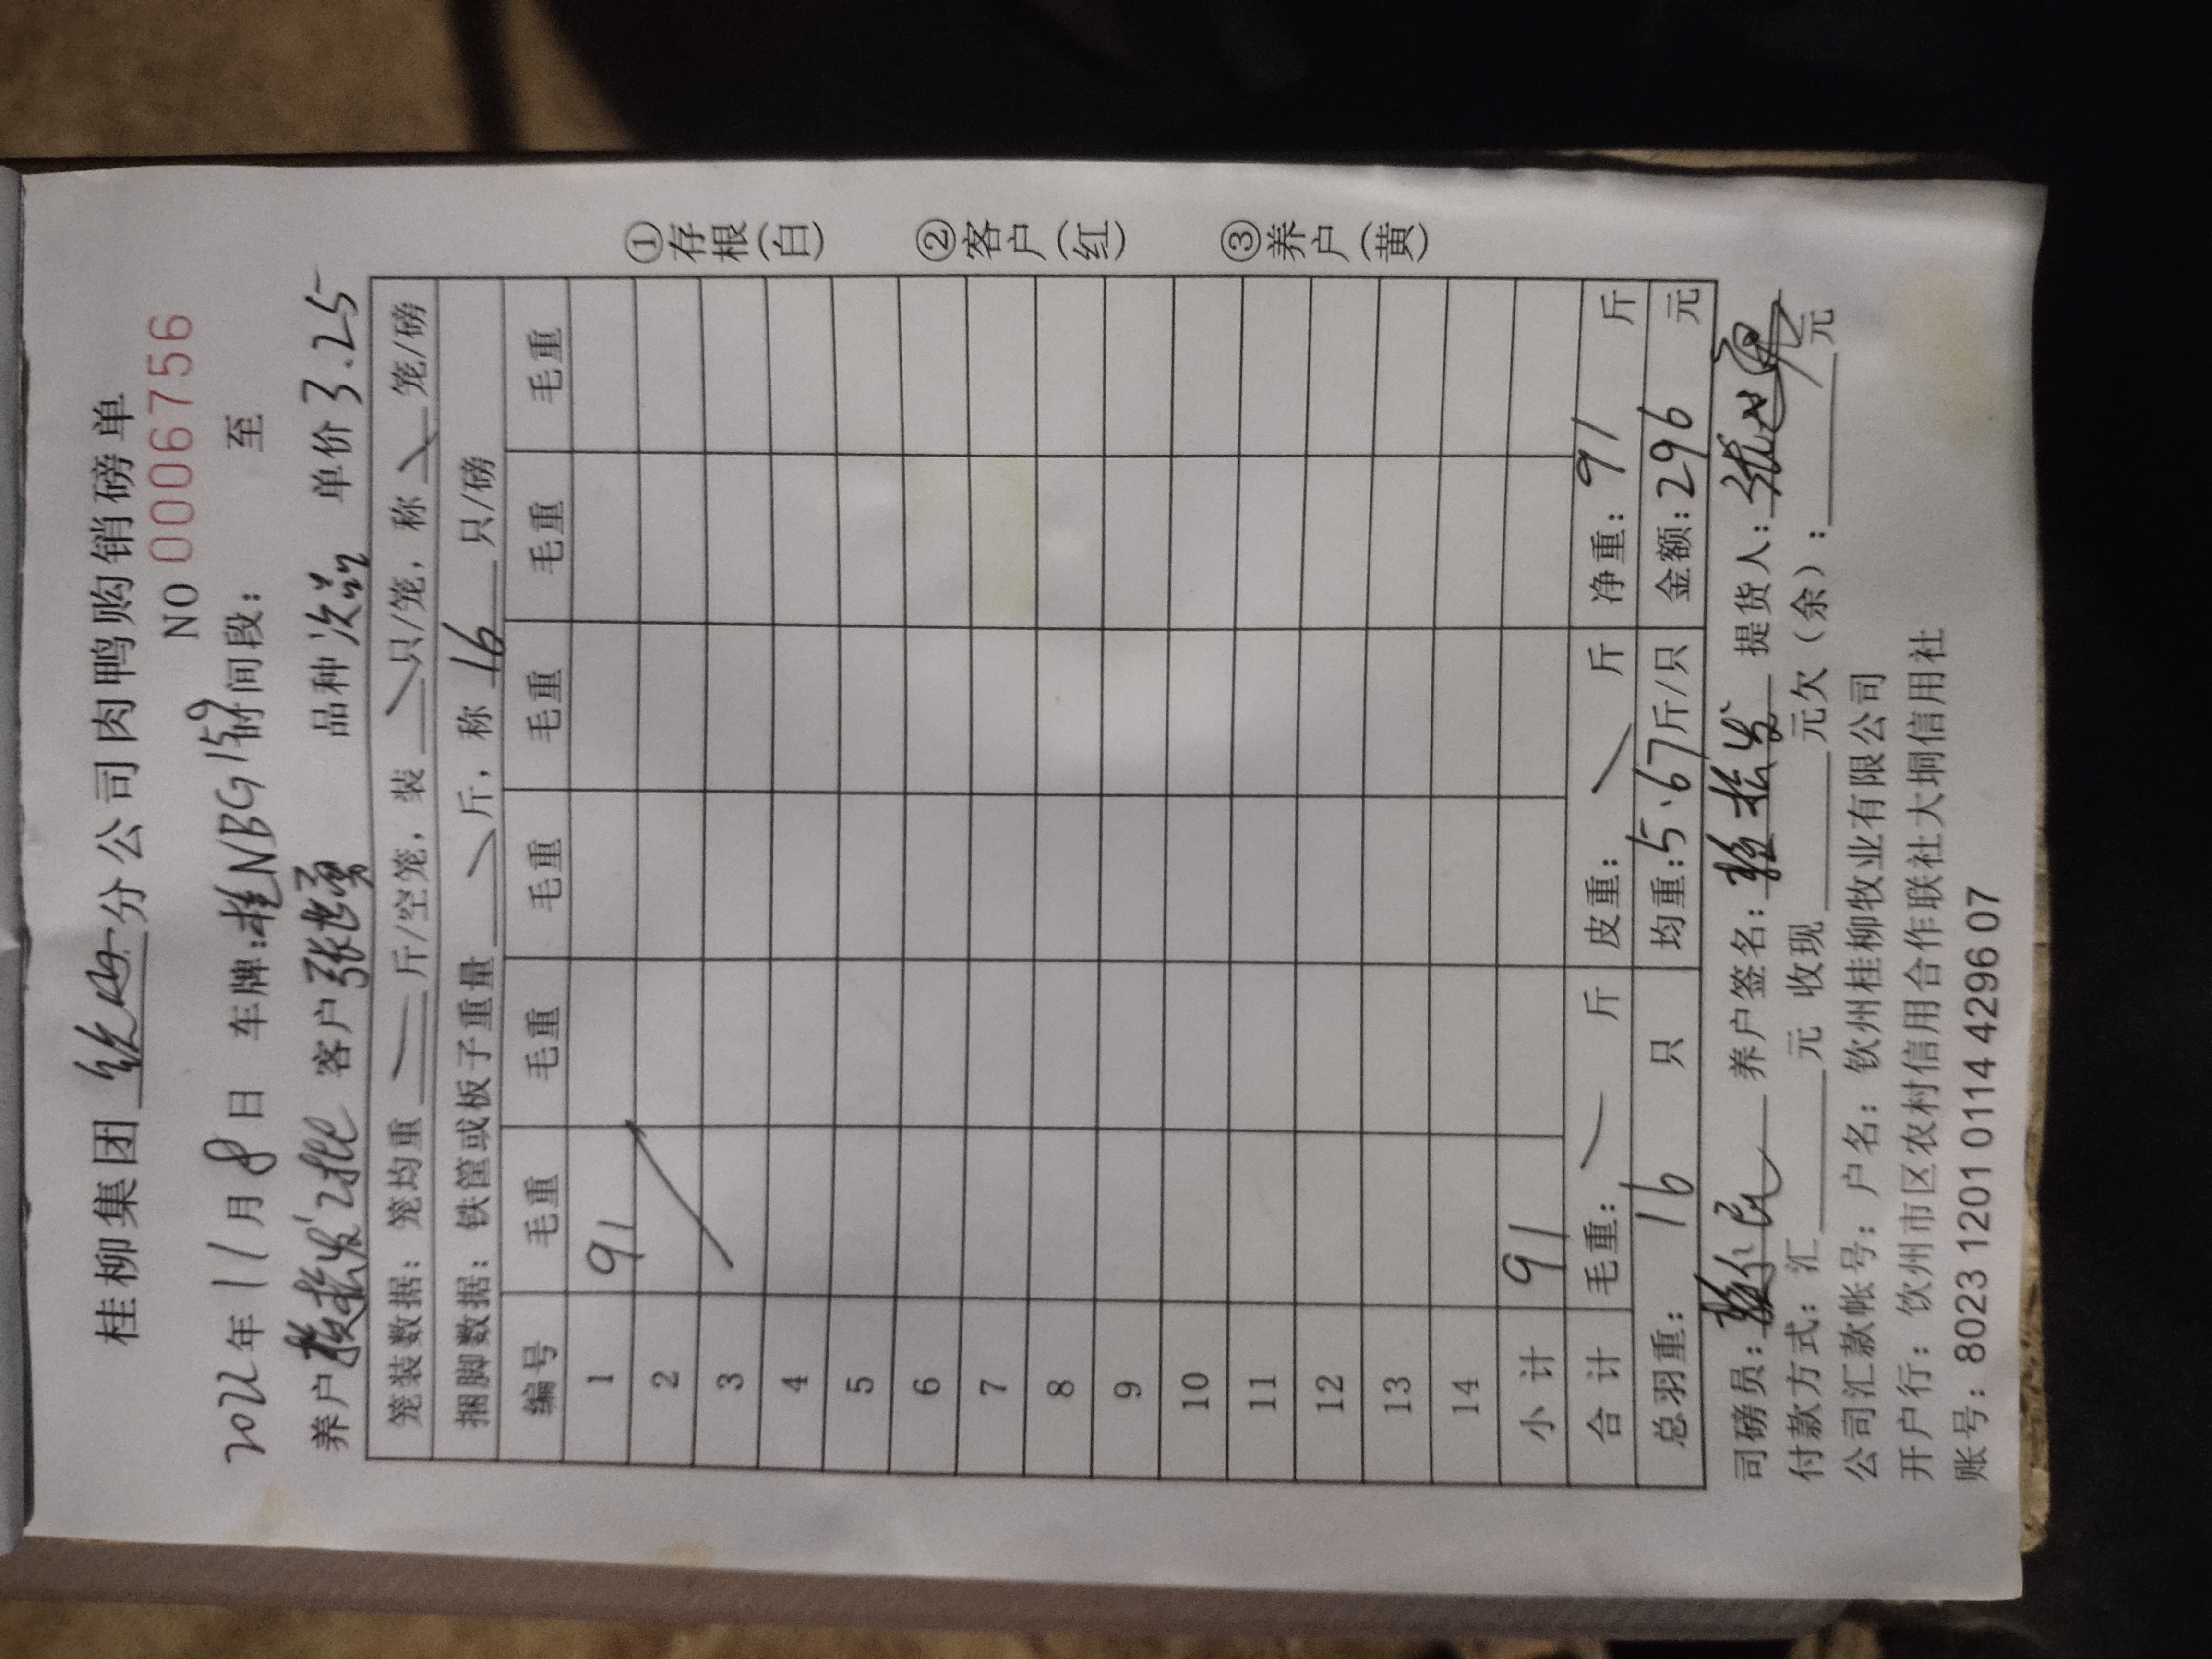 桂柳集团 钦州 分公司肉鸭购销磅单
NO 0006756
2022年11月8日 车牌:桂NBG159 时间段: 至
养户 发2批 客户张世勇 品种 次品 单价 3.25
笼装数据: 笼均重 斤/空笼, 装 只/笼, 称 笼/磅
捆脚数据: 铁筐或板子重量 斤, 称 16 只/磅
编号 毛重 毛重 毛重 毛重 毛重 毛重
1 91
2
3
4
5
6
7
8
9
10
11
12
13
14
小计 91
合计 毛重: 斤 皮重: 斤 净重: 91 斤
总羽重: 16 只 均重:5.67斤/只 金额:296 元
司磅员: 养户签名: 提货人:张世勇
付款方式: 汇 元 收现 元欠(余): 元
公司汇款帐号: 户名: 钦州桂柳牧业有限公司
开户行: 钦州市区农村信用合作联社大垌信用社
账号: 8023 1201 0114 4296 07
①存根(白) ②客户(红) ③养户(黄)